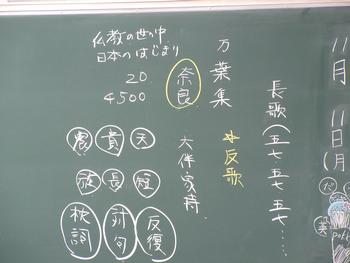 11月11日(月
長歌(五七五七五七……
万葉集
☆反歌
仏教の世の中
日本のはじまり
奈良
20
4500
大伴家持
農 貴 天
旋 長 短
枕詞 対句 反復